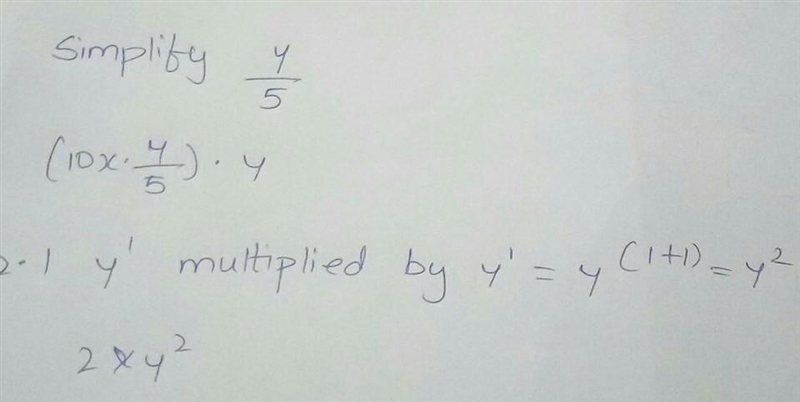 Simplify y/5
(10x · y/5) · y
2.1 y¹ multiplied by y¹ = y^(1+1) = y²
2xy²